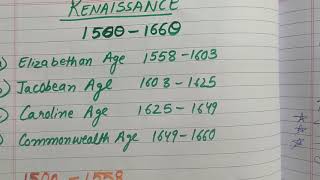 RENAISSANCE
1500-1660
Elizabethan Age 1558-1603
Jacobean Age 1603-1625
Caroline Age 1625-1649
Commonwealth Age 1649-1660
1500-1558